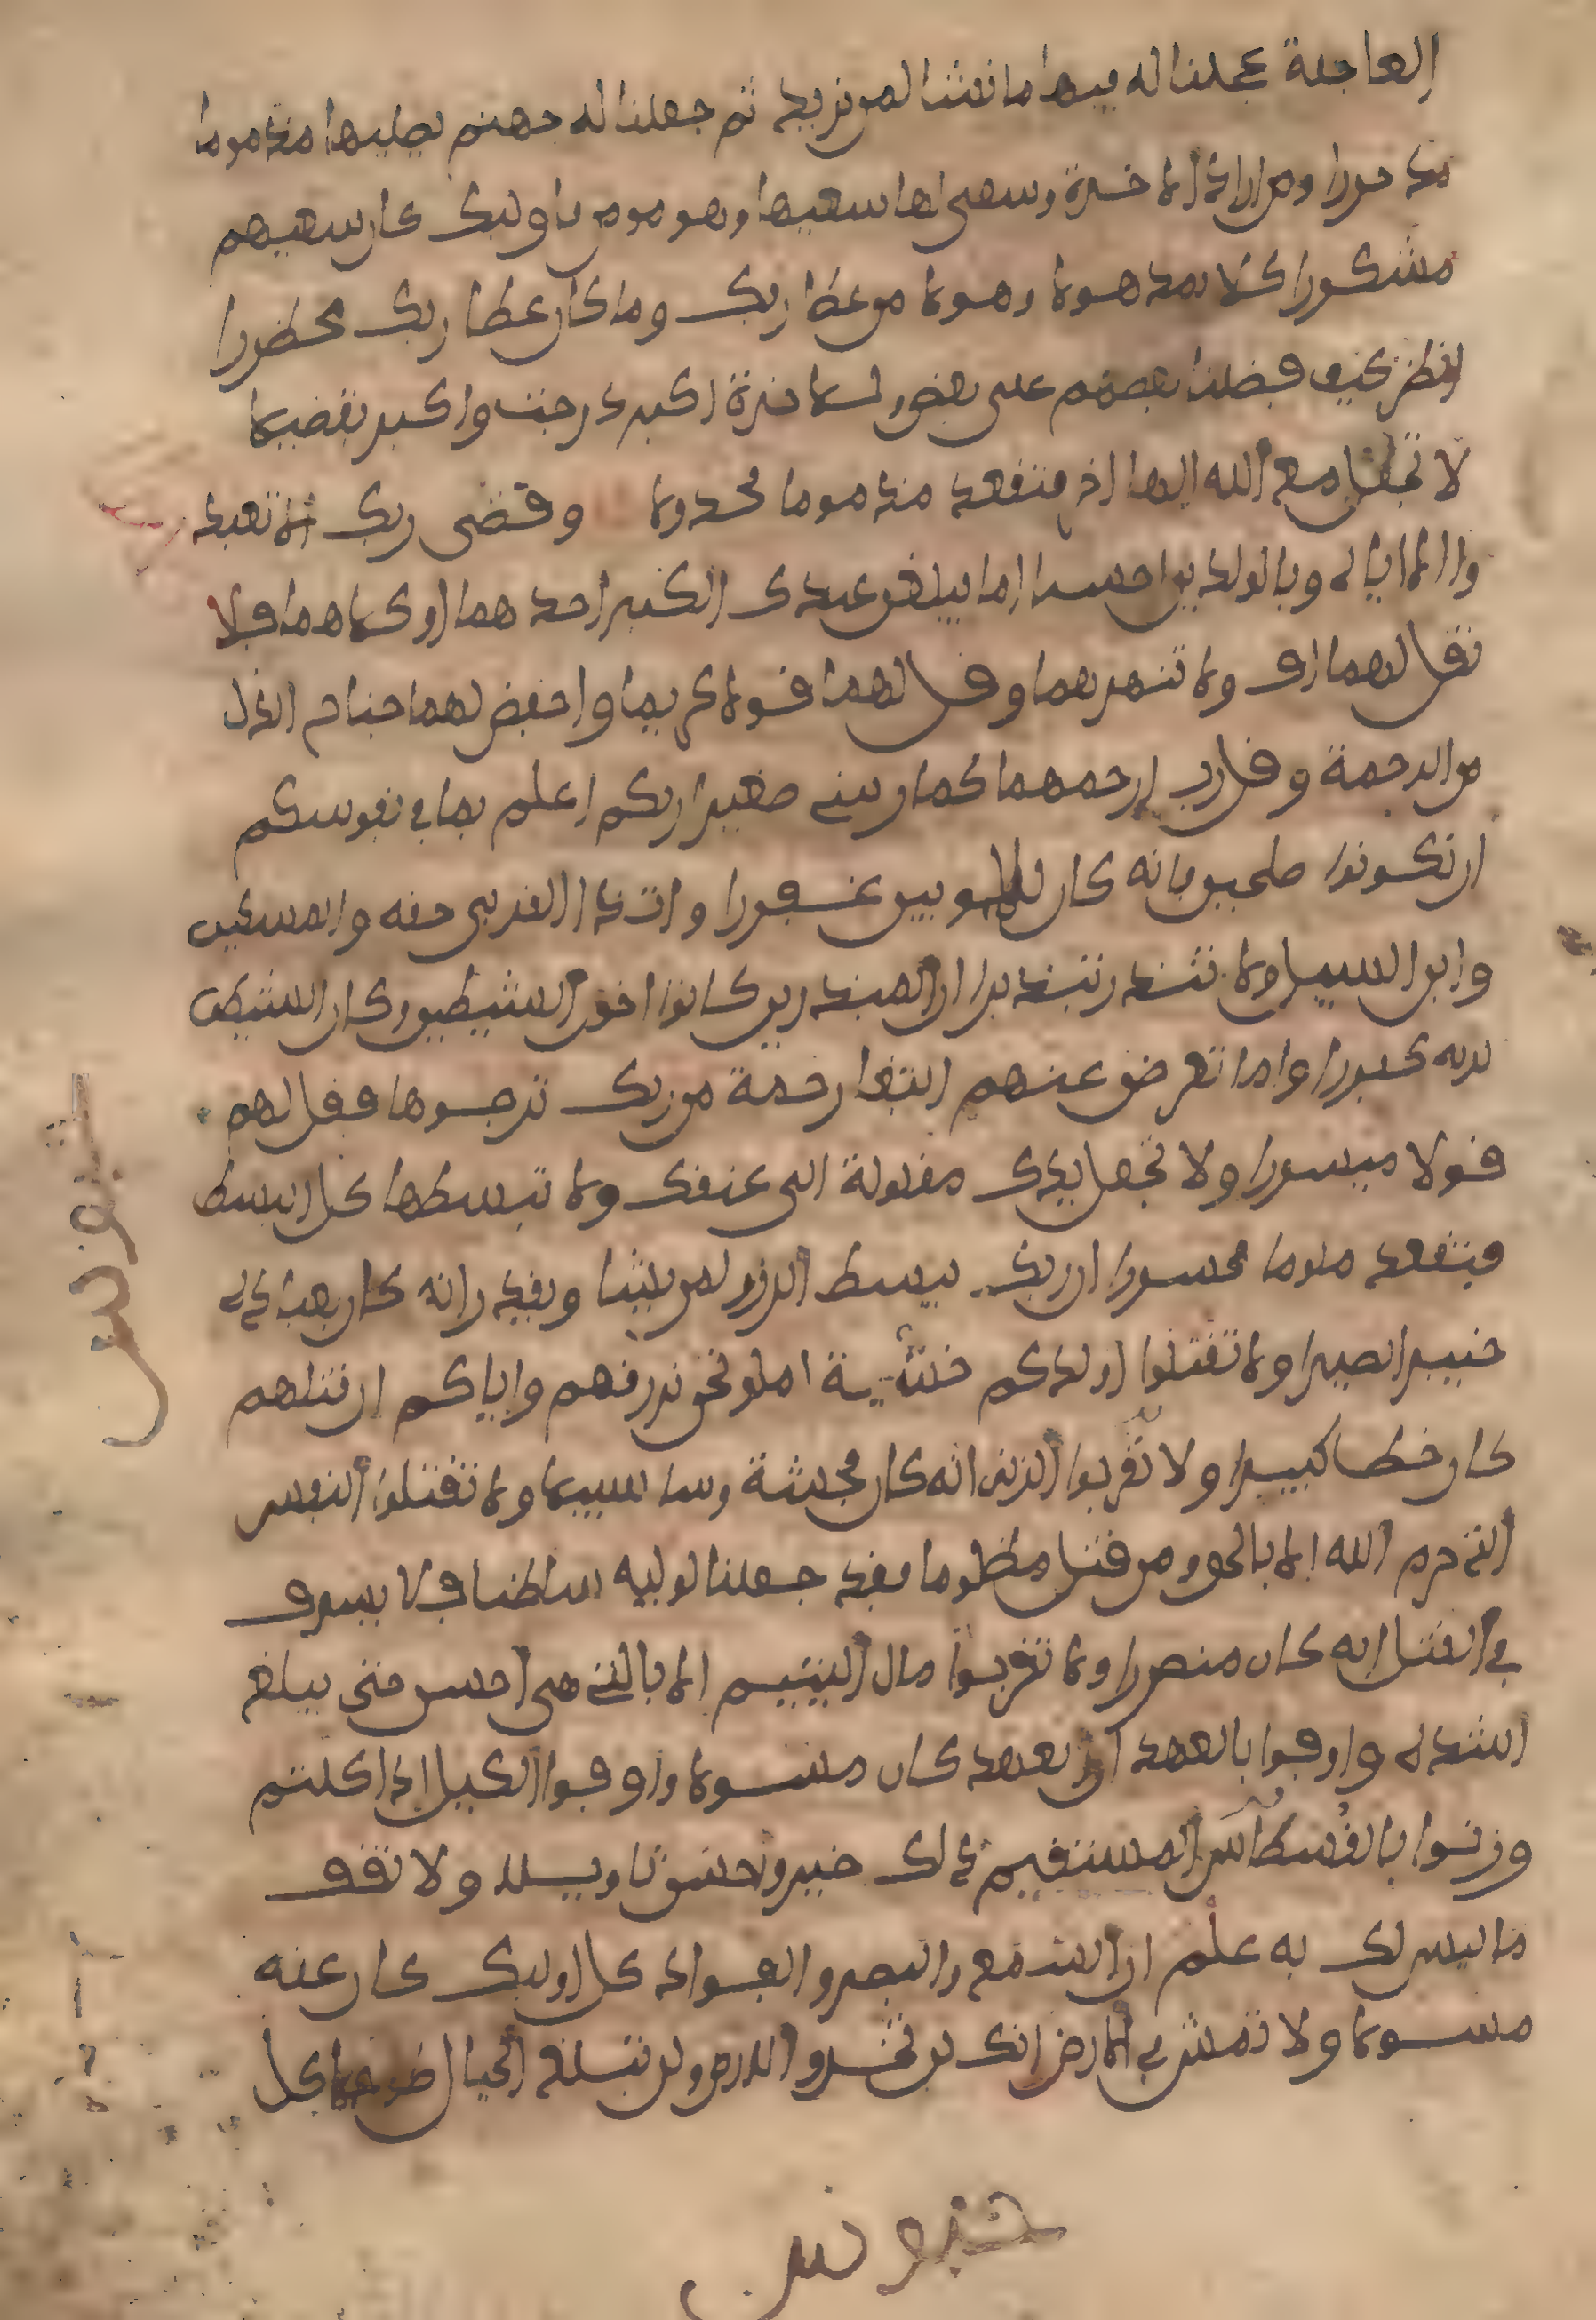 العاجلة عجلنا له فيها ما نشا لمن نريد ثم جعلنا له جهنم يصليها مذموما
مدحورا ومن اراد الاخرة وسعى لها سعيها وهو مومن فاوليك كان سعيهم
مشكورا كلا نمد هولا وهولا من عطا ربك وما كان عطا ربك محظورا
انظر كيف فضلنا بعضهم على بعض وللاخرة اكبر درجت واكبر تفضيلا
لا تجعل مع الله الها اخر فتقعد مذموما مخذولا وقضى ربك الا تعبد
وا الا اياه وبالولدين احسنا اما يبلغن عندك الكبر احدهما او كلاهما فلا
تقل لهما اف ولا تنهرهما وقل لهما قولا كريما واخفض لهما جناح الذل
من الرحمة وقل رب ارحمهما كما ربيني صغيرا ربكم اعلم بما في نفوسكم
ان تكونوا صلحين فانه كان للاوبين غفورا وات ذا القربى حقه والمسكين
وابن السبيل ولا تبذر تبذيرا ان المبذرين كانوا اخون الشيطين وكان الشيطن
لربه كفورا واما تعرضن عنهم ابتغا رحمة من ربك ترجوها فقل لهم
قولا ميسورا ولا تجعل يدك مغلولة الى عنقك ولا تبسطها كل البسط
فتقعد ملوما محسورا ان ربك يبسط الرزق لمن يشا ويقدر انه كان بعباده
خبيرا بصيرا ولا تقتلوا اولدكم خشية املق نحن نرزقهم واياكم ان قتلهم
كان خطا كبيرا ولا تقربوا الزنى انه كان فحشة وسا سبيلا ولا تقتلوا النفس
التي حرم الله الا بالحق ومن قتل مظلوما فقد جعلنا لوليه سلطنا فلا يسرف
في القتل انه كان منصورا ولا تقربوا مال اليتيم الا بالتي هي احسن حتى يبلغ
اشده واوفوا بالعهد ان العهد كان مسولا واوفوا الكيل اذا كلتم
وزنوا بالقسطاس المستقيم ذلك خير واحسن تاويلا ولا تقف
ما ليس لك به علم ان السمع والبصر والفواد كل اوليك كان عنه
مسولا ولا تمش في الارض انك لن تخرق الارض ولن تبلغ الجبال طولا كل